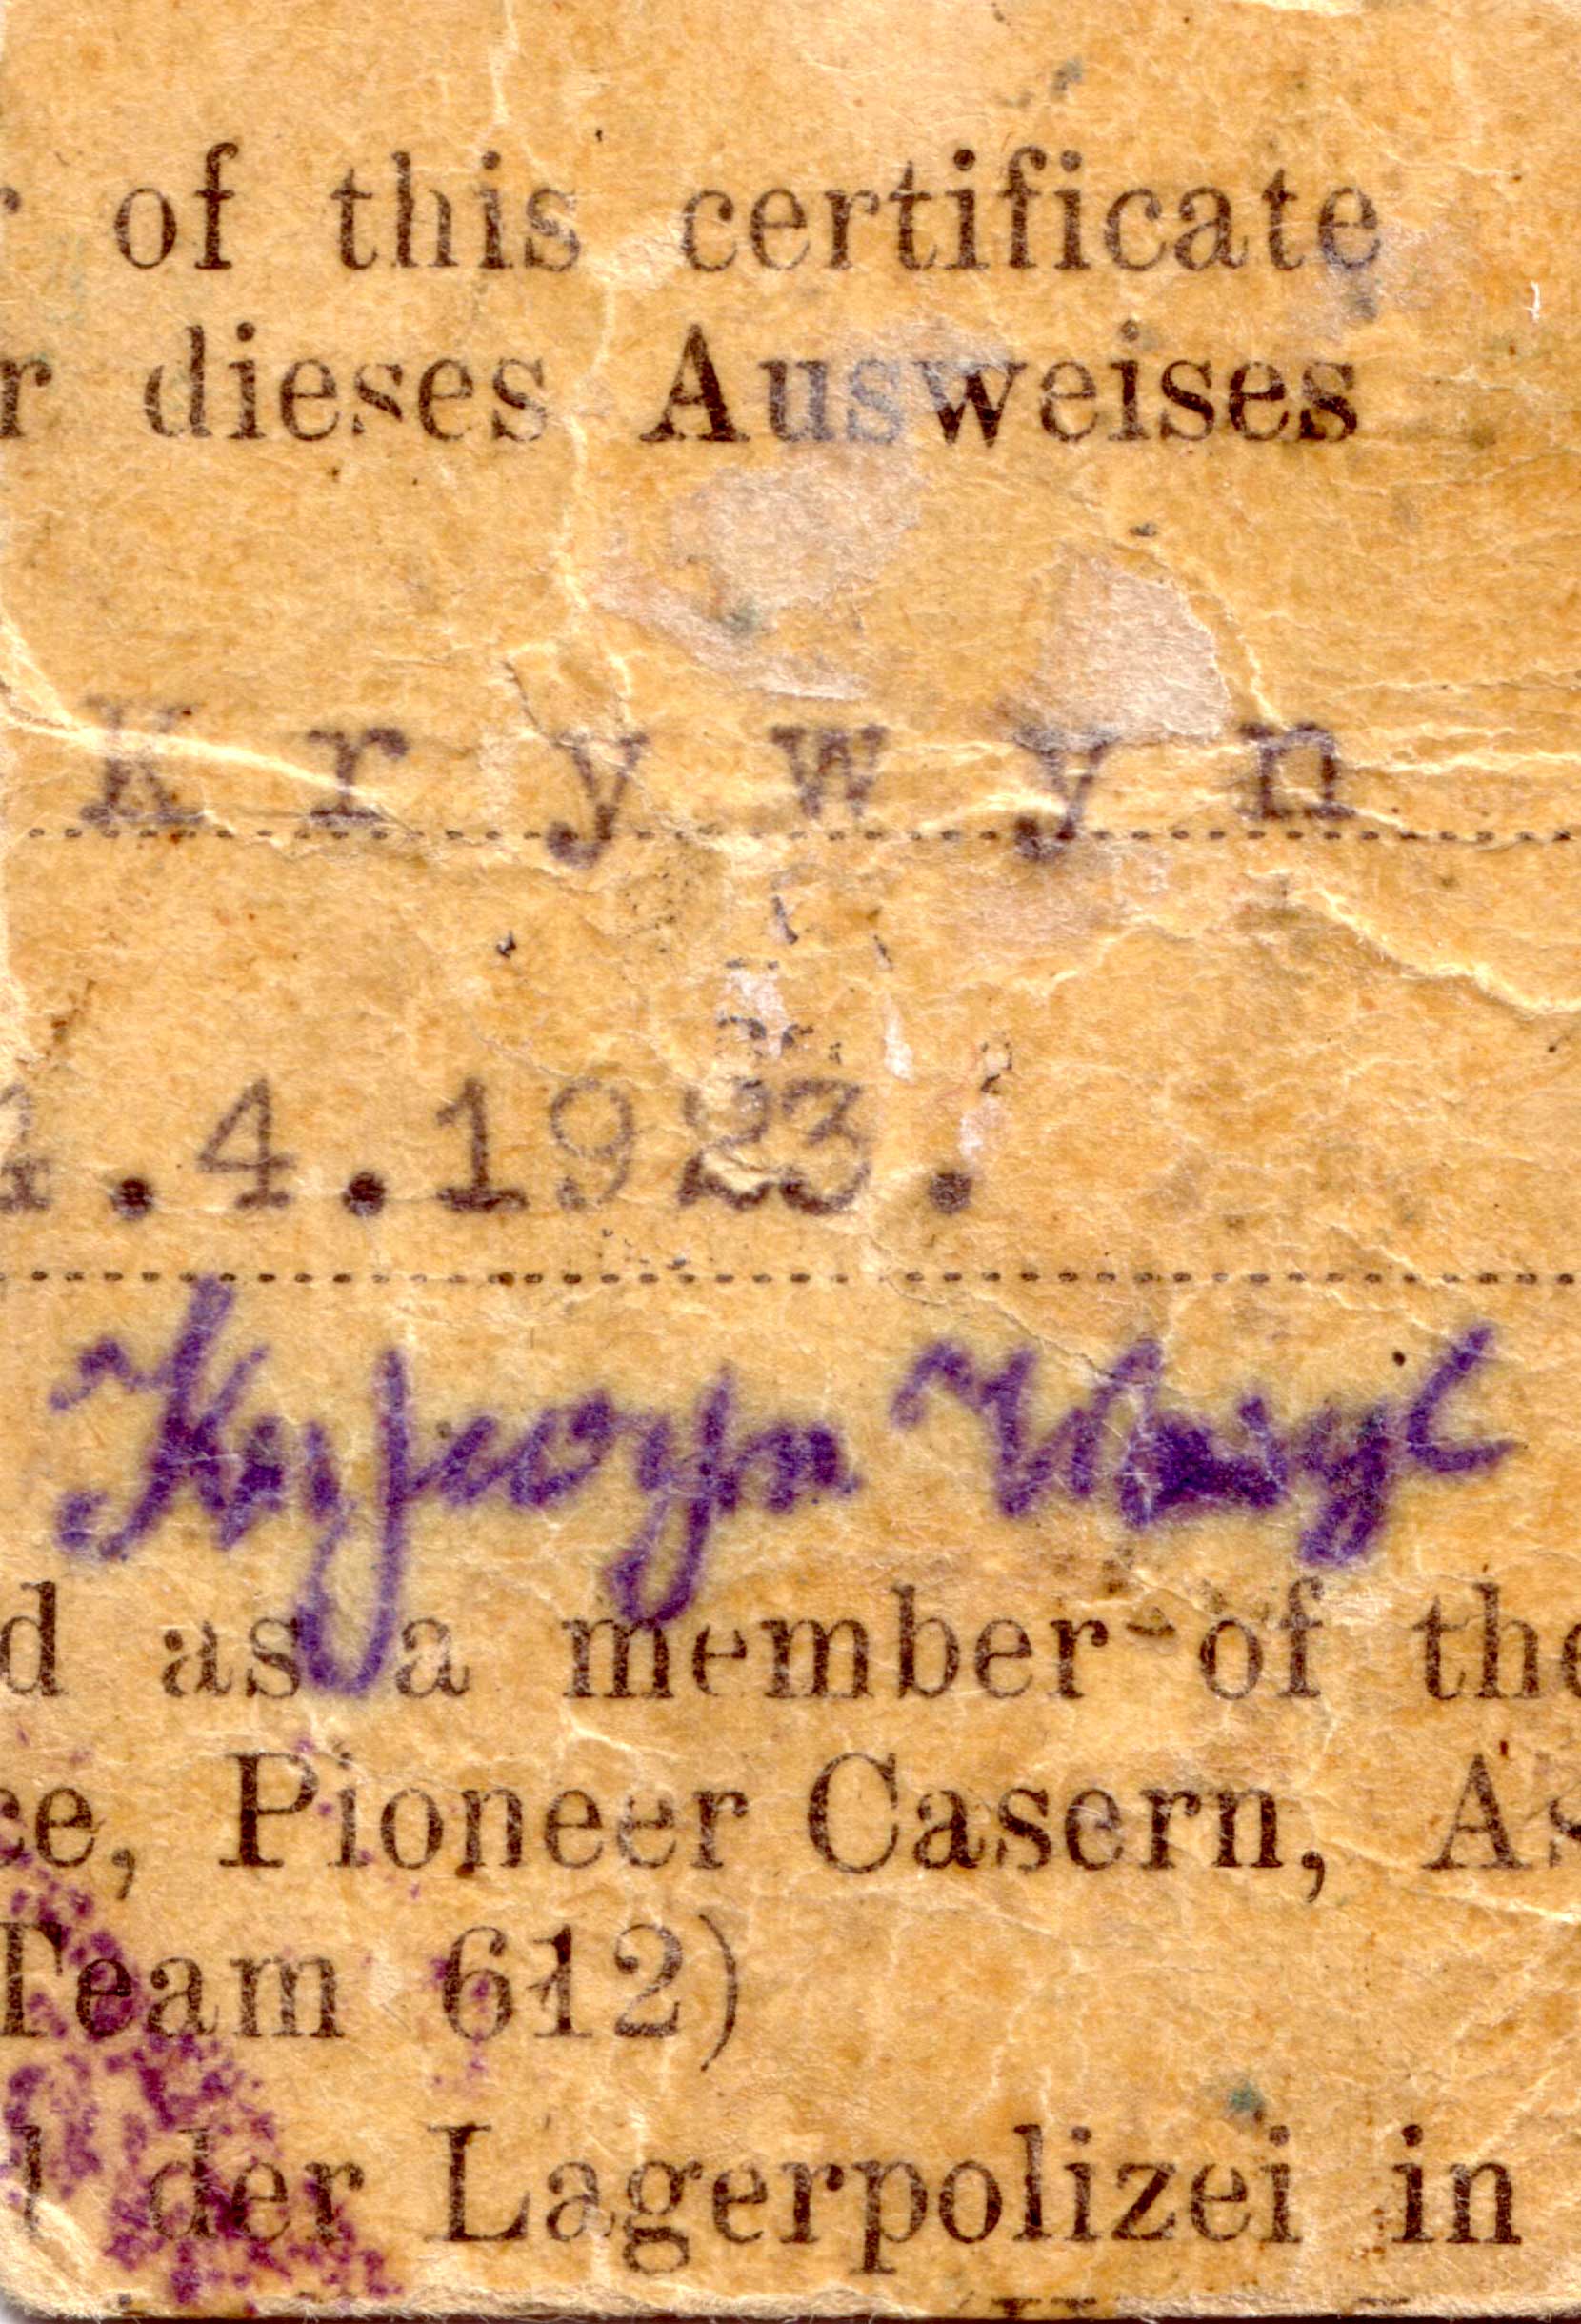 r of this certificate
r dieses Ausweises
K r y w y n
1.4.1923.
d as a member of the
ce, Pioneer Casern, As
Team 612)
d der Lagerpolizei in